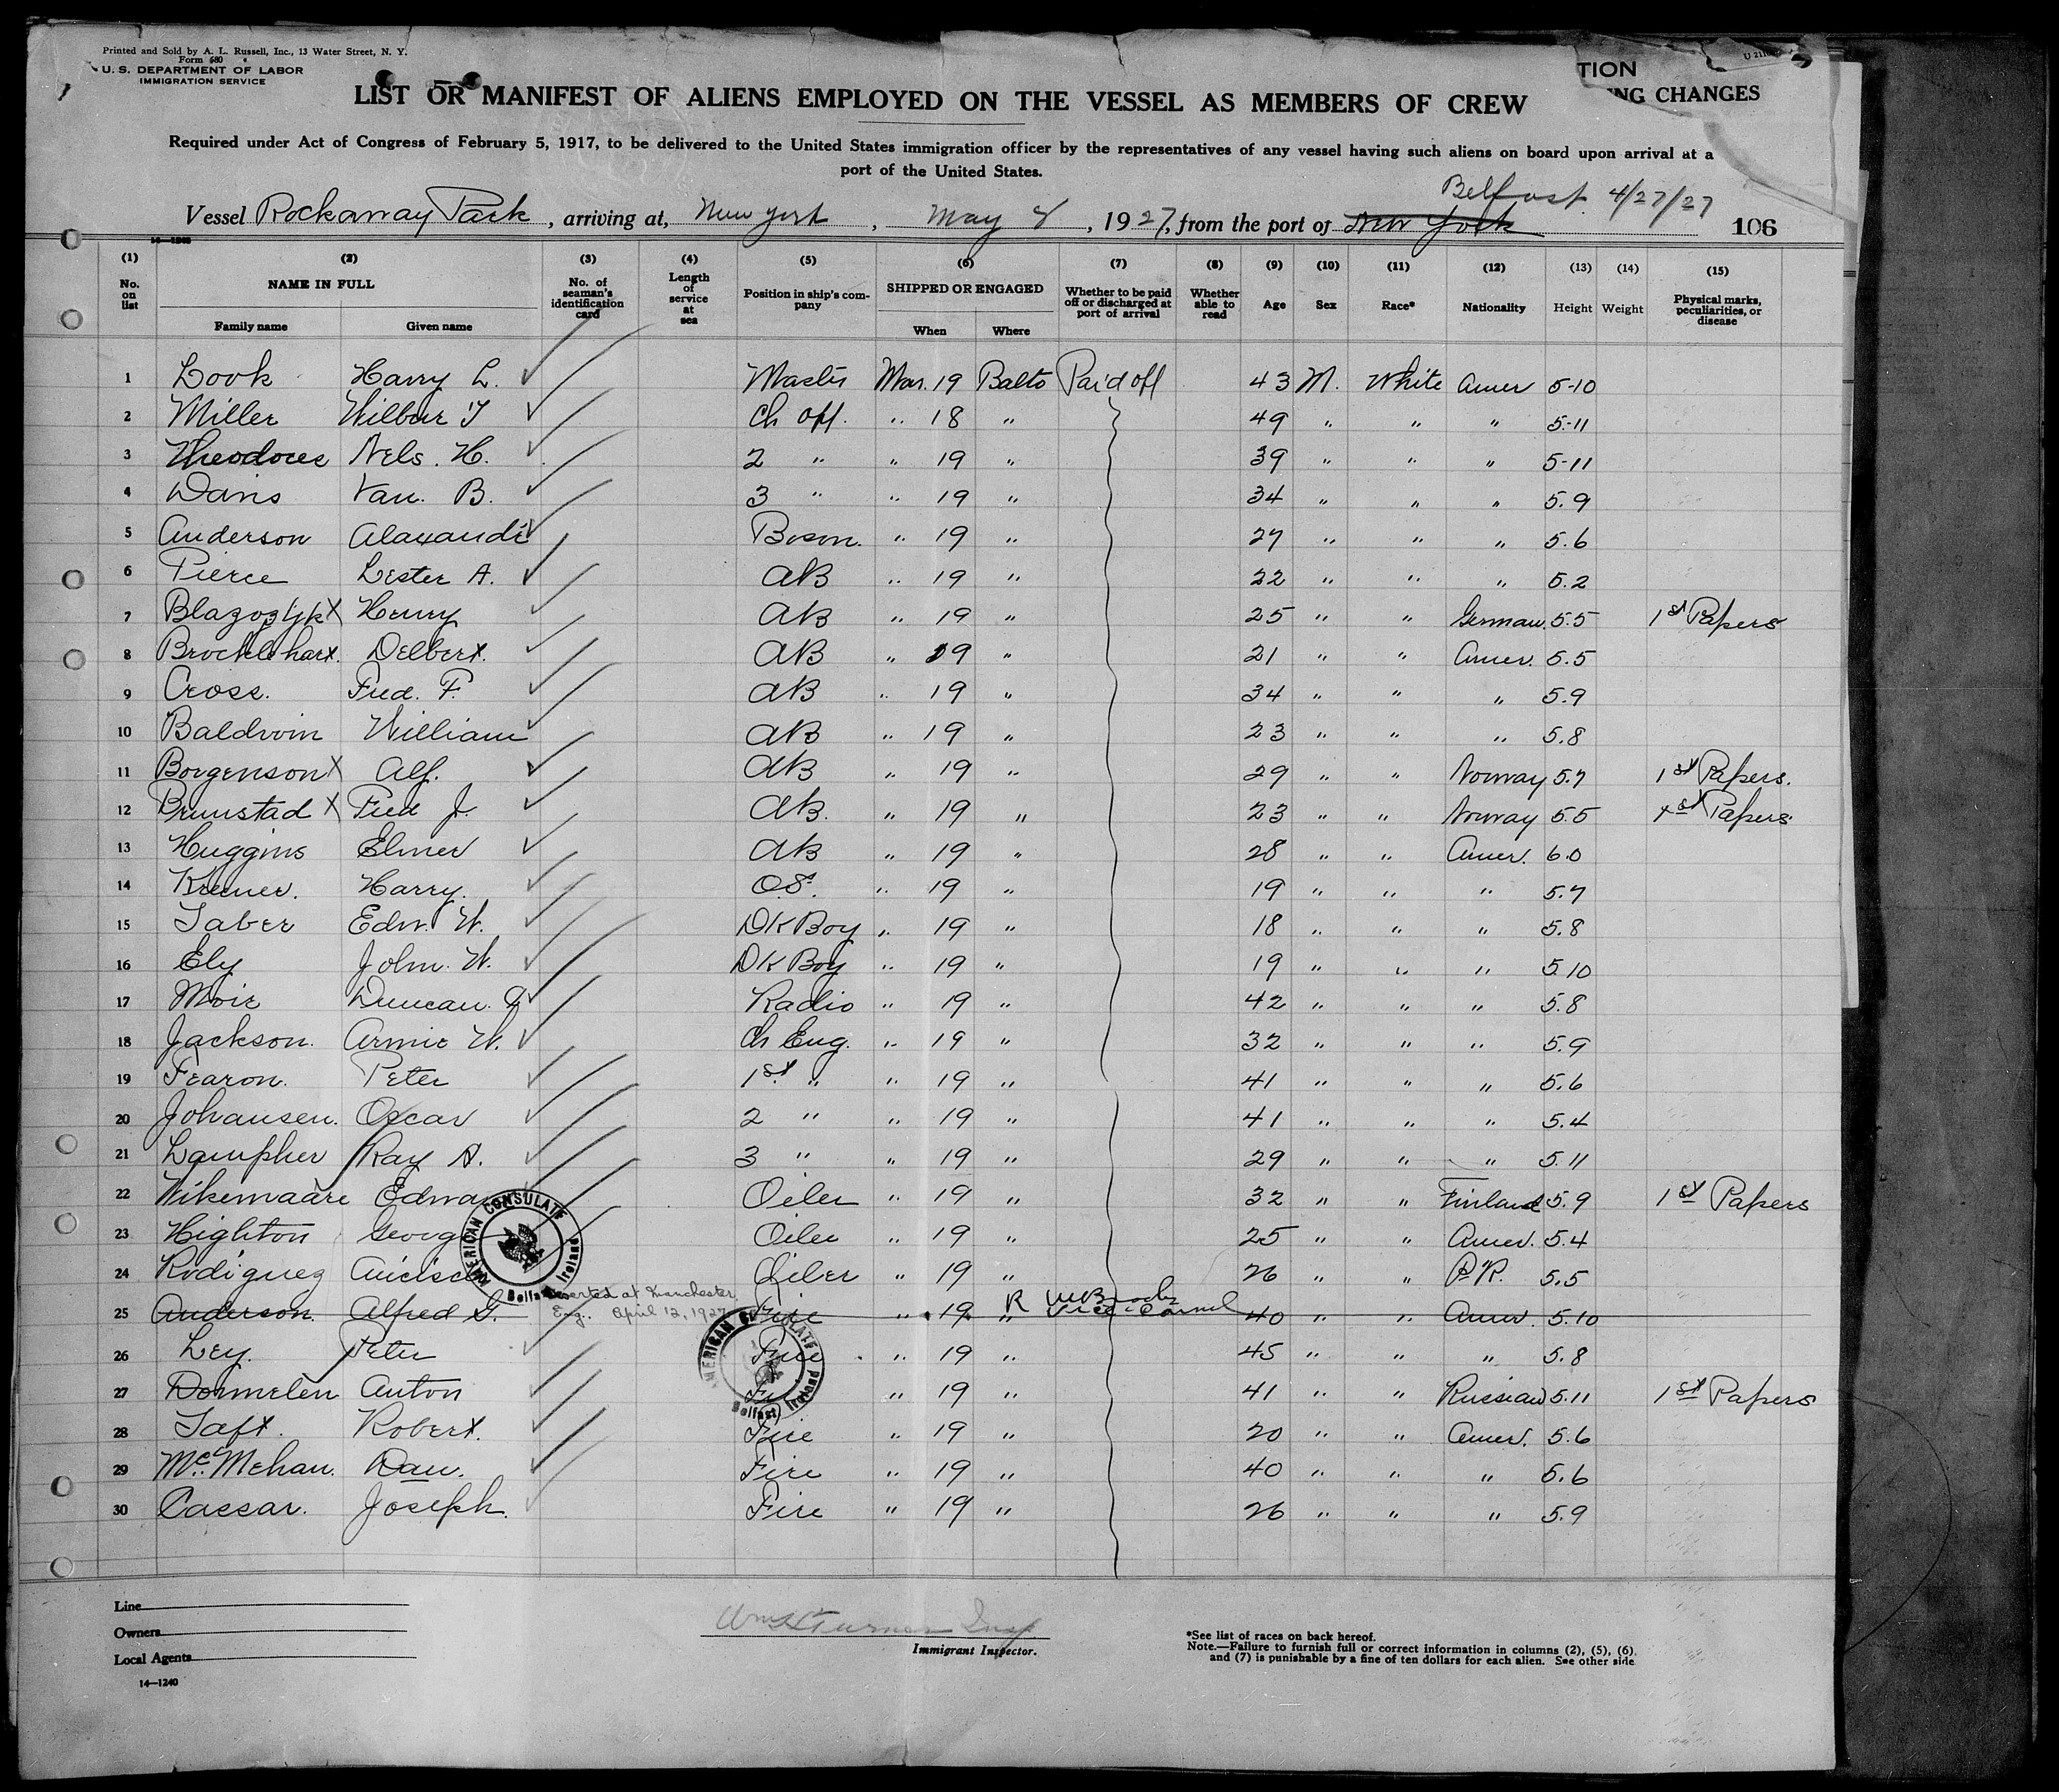 Printed and Sold by A. L. Russell, Inc., 13 Water Street, N. Y.
Form 680
U. S. DEPARTMENT OF LABOR
IMMIGRATION SERVICE
TION
NG CHANGES
LIST OR MANIFEST OF ALIENS EMPLOYED ON THE VESSEL AS MEMBERS OF CREW
Required under Act of Congress of February 5, 1917, to be delivered to the United States immigration officer by the representatives of any vessel having such aliens on board upon arrival at a
port of the United States.
Belfast 4/27/27
Vessel Rockaway Park, arriving at, New York, May 8, 1927, from the port of New York 106
14—1240
(1) (2) (3) (4) (5) (6) (7) (8) (9) (10) (11) (12) (13) (14) (15)
No. on list NAME IN FULL Family name Given name No. of seaman's identification card Length of service at sea Position in ship's company SHIPPED OR ENGAGED When Where Whether to be paid off or discharged at port of arrival Whether able to read Age Sex Race* Nationality Height Weight Physical marks, peculiarities, or disease
1 Look Harry L. Master Mar. 19 Balto Paid off 43 M. White Amer 5-10
2 Miller Wilbur T Ch off. " 18 " 49 " " " 5-11
3 Theodores Nels. H. 2 " " 19 " 39 " " " 5-11
4 Davis Van. B. 3 " " 19 " 34 " " " 5.9
5 Anderson Alaxandr Bosom. " 19 " 27 " " " 5.6
6 Pierce Lester A. AB " 19 " 22 " " " 5.2
7 X Henry AB " 19 " 25 " " German. 5.5 1st Papers
8 Brocklehart. Delbert. AB " 19 " 21 " " Amer. 5.5
9 Cross. Fred. F. AB " 19 " 34 " " " 5.9
10 Baldwin William AB " 19 " 23 " " " 5.8
11 Borgenson X Alf. AB " 19 " 29 " " Norway 5.7 1st Papers.
12 Brunstad X Fred J. AB. " 19 " 23 " " Norway 5.5 1st Papers.
13 Huggins Elmer AB " 19 " 28 " " Amer. 6.0
14 Kremer. Harry. OS. " 19 " 19 " " " 5.7
15 Taber Edw. W. DK Boy " 19 " 18 " " " 5.8
16 Ely John. W. DK Boy " 19 " 19 " " " 5.10
17 Moir Duncan. G Radio " 19 " 42 " " " 5.8
18 Jackson. Armie W. Ch Eng. " 19 " 32 " " " 5.9
19 Fearon. Peter 1st " " 19 " 41 " " " 5.6
20 Johansen. Oscar 2 " " 19 " 41 " " " 5.4
21 Lampher Ray A. 3 " " 19 " 29 " " " 5.11
22 Wikemaare Edwa Oiler " 19 " 32 " " Finland 5.9 1st Papers
23 Highton Georg Oiler " 19 " 25 " " Amer. 5.4
24 Rodiguez Oiler " 19 " 26 " " P.R. 5.5
AMERICAN CONSULATE Belfast Ireland
Deserted at Manchester,
Eng. April 12, 1927
Vice-Consul
25 Anderson. Alfred G. Fire " 19 " 40 " " Amer. 5.10
26 Ley. Peter Fire " 19 " 45 " " " 5.8
AMERICAN CONSULATE Belfast Ireland
27 Dommelen Anton Fire " 19 " 41 " " Russian 5.11 1st Papers
28 Taft. Robert. Fire " 19 " 20 " " Amer. 5.6
29 Mc.Mehan. Dan. Fire " 19 " 40 " " " 5.6
30 Caesar. Joseph. Fire " 19 " 26 " " " 5.9
Line
Owners
Local Agents
14—1240
Wm Turner Insp
Immigrant Inspector.
*See list of races on back hereof.
Note.—Failure to furnish full or correct information in columns (2), (5), (6),
and (7) is punishable by a fine of ten dollars for each alien. See other side